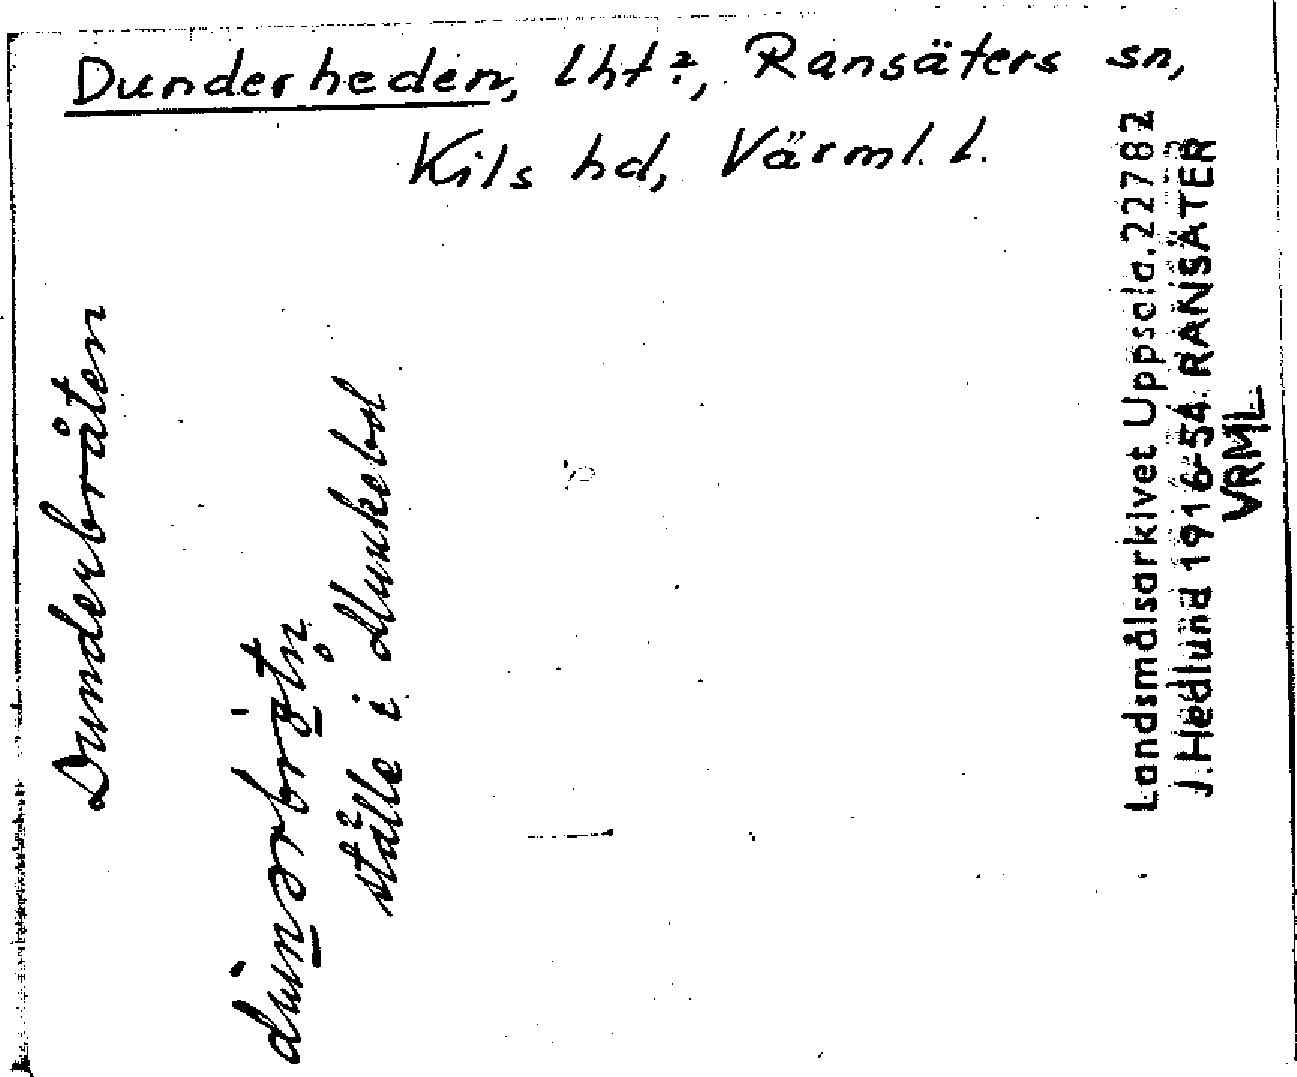 Dunderheden, lht?, Ransäters sn,
Kils hd, Värml. l.
Dunderbråten
ställe i Munkebol
Landsmålsarkivet Uppsala. 22782
J. Hedlund 1916-54. RANSÄTER
VRML